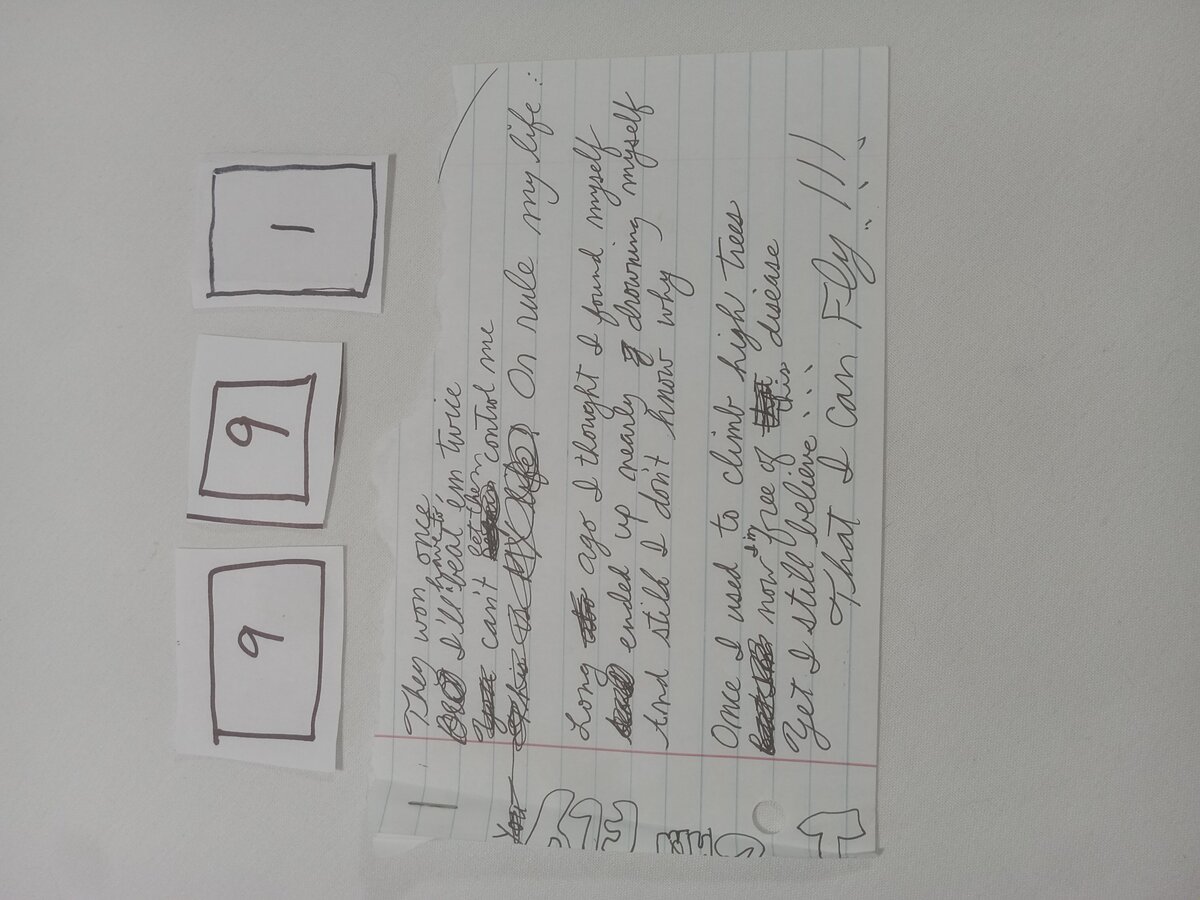 9 9 1
They won once
I'll have to beat 'em twice
can't let them control me
Or rule my life...
Long ago I thought I found myself
ended up nearly drowning myself
And still I don't know why
Once I used to climb high trees
now I'm free of this disease
Yet I still believe...
That I Can Fly!!!